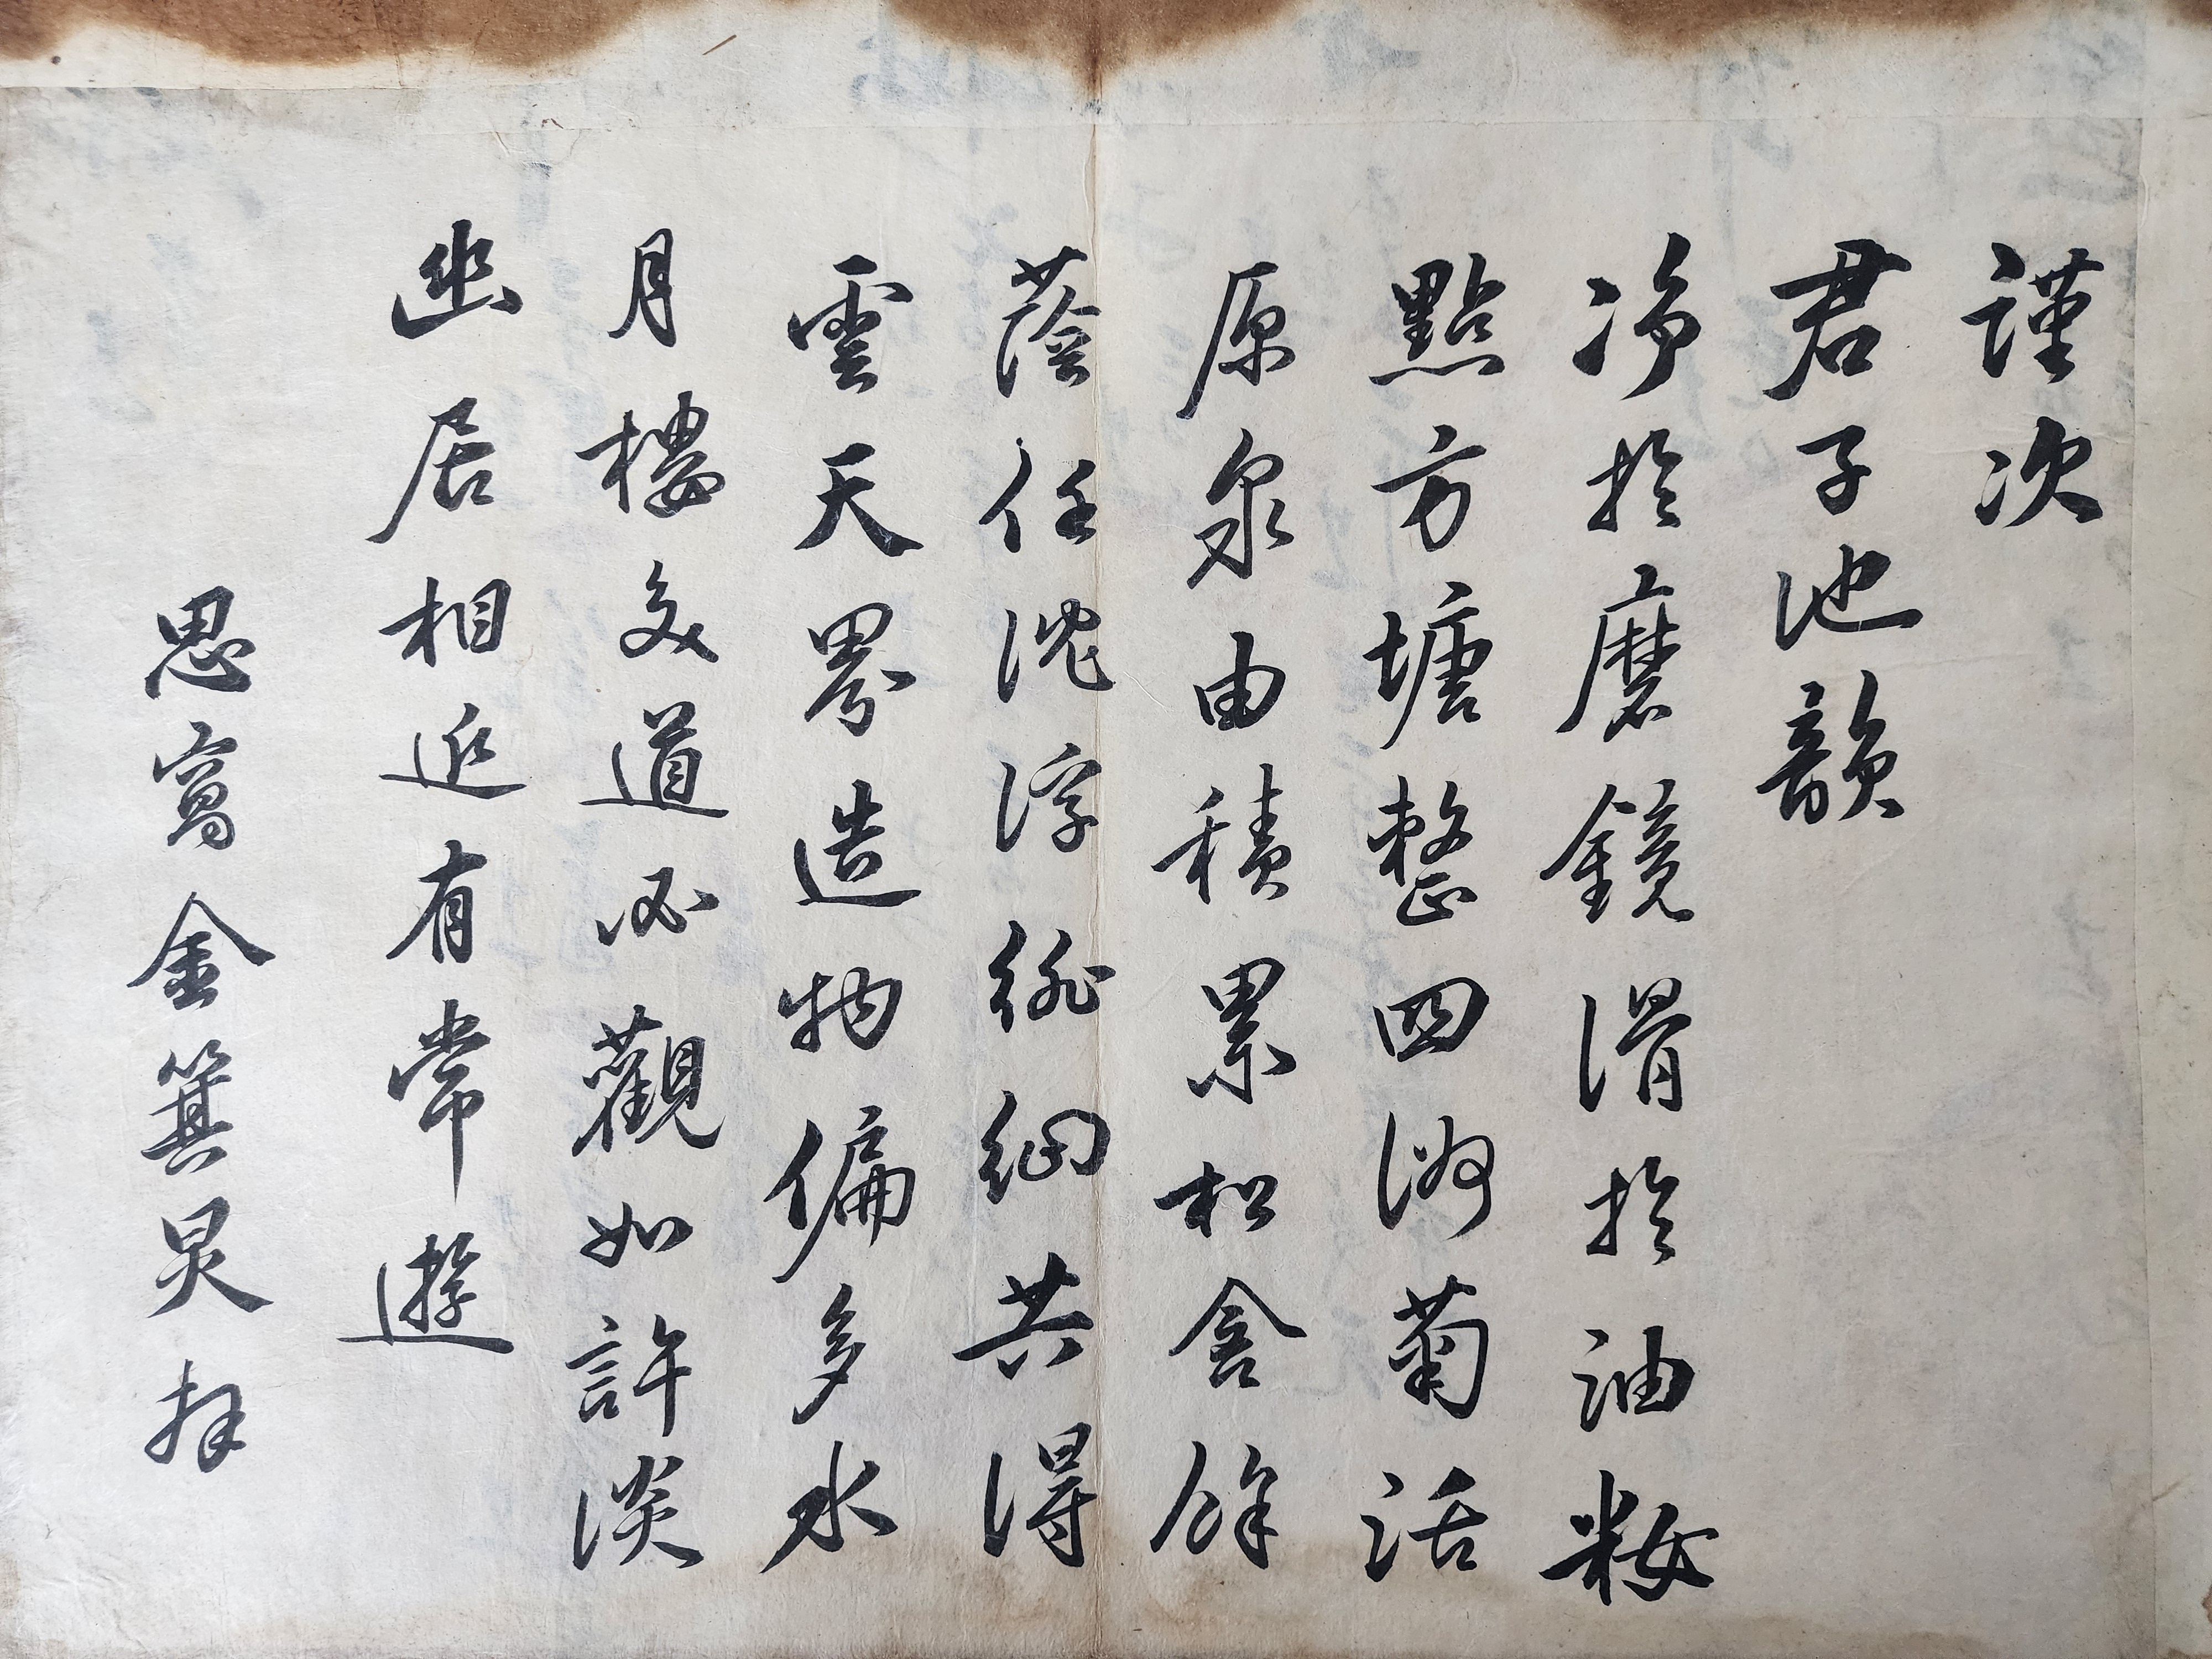 謹次
君子池韻
净於磨鏡滑於油粧
點方塘整四洲菊活
原泉由積累松含餘
蔭任沈浮徘徊共得
雲天界造物偏多水
月樓交道必觀如許淡
幽居相近有常遊
思窩金箕炅拜